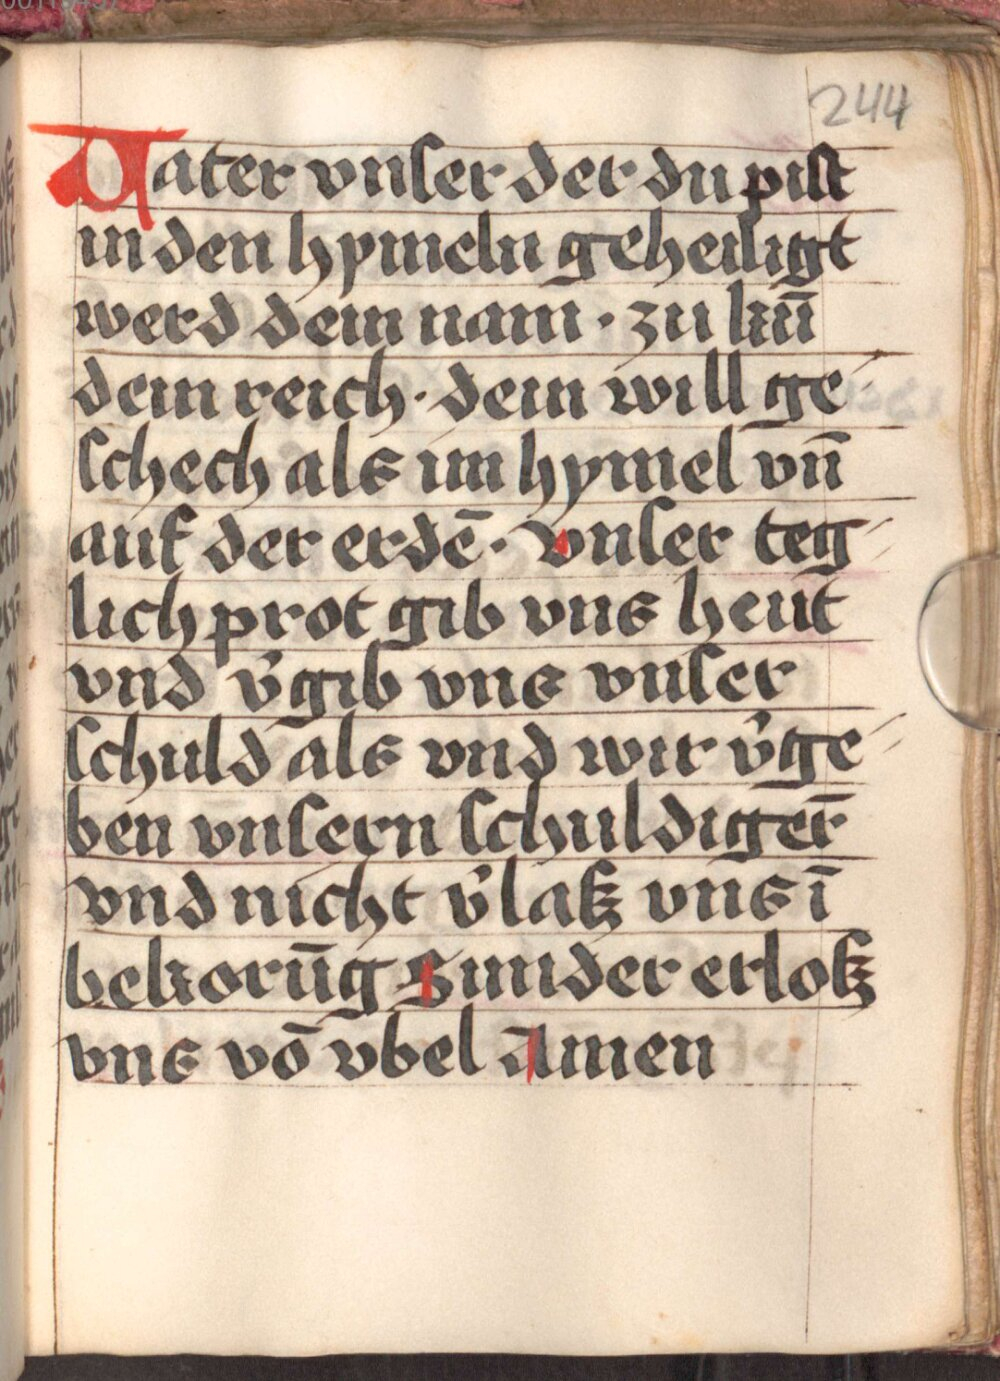 244
Vater vnser der du pist
in den hymeln geheiligt
werd dein nam · zu kūn
dein reich · dein will ge
schech als im hymel vn̄
auf der erdē · vnser teg
lich prot gib vns heut
vnd v̉gib vns vnser
schuld als vnd wir v̉ge
ben vnsern schuldiger̄
vnd nicht v̉laß vns ī
bekorūg Sunder erloß
vns vō vbel Amen